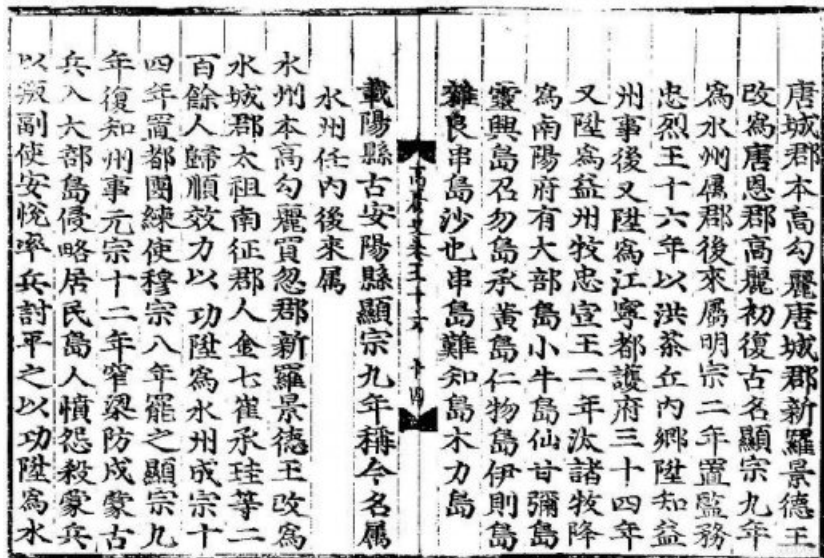 唐城郡本高勾麗唐城郡新羅景德王
改爲唐恩郡高麗初復古名顯宗九年
爲水州屬郡後來屬明宗二年置監務
忠烈王十六年以洪茶丘內鄉陞知益
州事後又陞爲江寧都護府三十四年
又陞爲益州牧忠宣王二年汰諸牧降
爲南陽府有大部島小牛島仙甘彌島
靈興島召勿島承黃島仁物島伊則島
雜良串島沙也串島難知島木力島
高麗史卷五十六 十四
載陽縣古安陽縣顯宗九年稱今名屬
水州任內後來屬
水州本高勾麗買忽郡新羅景德王改爲
水城郡太祖南征郡人金七崔承珪等二
百餘人歸順效力以功陞爲水州成宗十
四年置都團練使穆宗八年罷之顯宗九
年復知州事元宗十二年窄梁防戍蒙古
兵入大部島侵略居民島人憤怨殺蒙兵
以叛副使安悅率兵討平之以功陞爲水